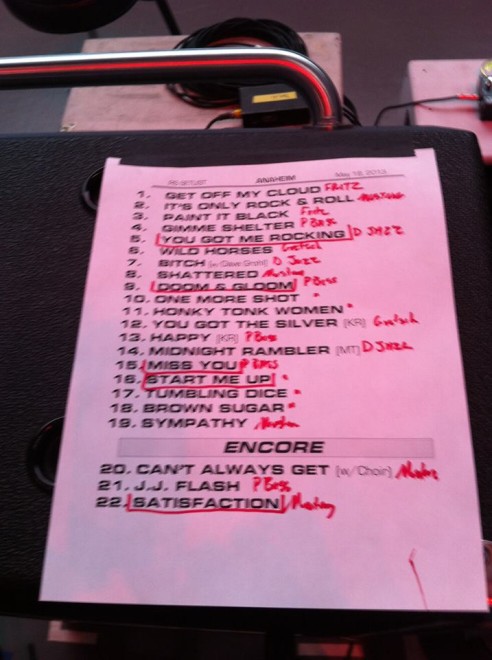 PRO SETLIST ANAHEIM May 18, 2013
1. GET OFF MY CLOUD FRITZ
2. IT'S ONLY ROCK & ROLL MUSTANG
3. PAINT IT BLACK Fritz
4. GIMME SHELTER P Bass
5. YOU GOT ME ROCKING D JAZZ
6. WILD HORSES Gretsch
7. BITCH (w/Dave Grohl) D JAZZ
8. SHATTERED Mustang
9. DOOM & GLOOM P Bass
10. ONE MORE SHOT "
11. HONKY TONK WOMEN "
12. YOU GOT THE SILVER (KR) Gretsch
13. HAPPY (KR) P Bass
14. MIDNIGHT RAMBLER (MT) D JAZZ
15. MISS YOU P BASS
16. START ME UP "
17. TUMBLING DICE "
18. BROWN SUGAR "
19. SYMPATHY Mustang
ENCORE
20. CAN'T ALWAYS GET (w/Choir) Mustang
21. J.J. FLASH P Bass
22. SATISFACTION Mustang